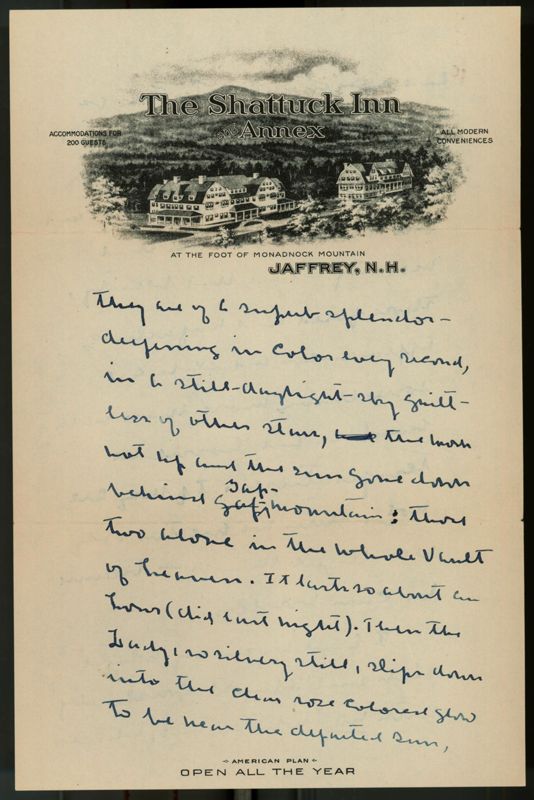 The Shattuck Inn
AND Annex
ACCOMMODATIONS FOR
200 GUESTS
ALL MODERN
CONVENIENCES
AT THE FOOT OF MONADNOCK MOUNTAIN
JAFFREY, N.H.
they are of a superb splendor—
deepening in color every second,
in a still-daylight-sky guilt-
less of other stars, the moon
not up and the sun gone down
behind Gap-mountain; those
two alone in the whole vault
of heaven. It lasts so about an
hour (did last night). Then the
Lady, so silvery still, slips down
into the clear rose colored glow
to be near the departed sun,
AMERICAN PLAN
OPEN ALL THE YEAR